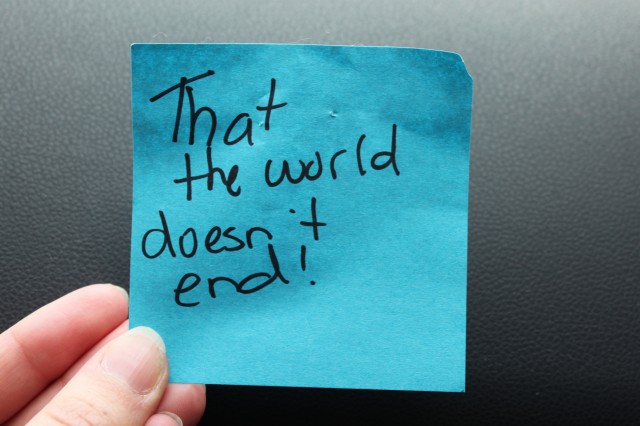 That
the world
doesn't
end!